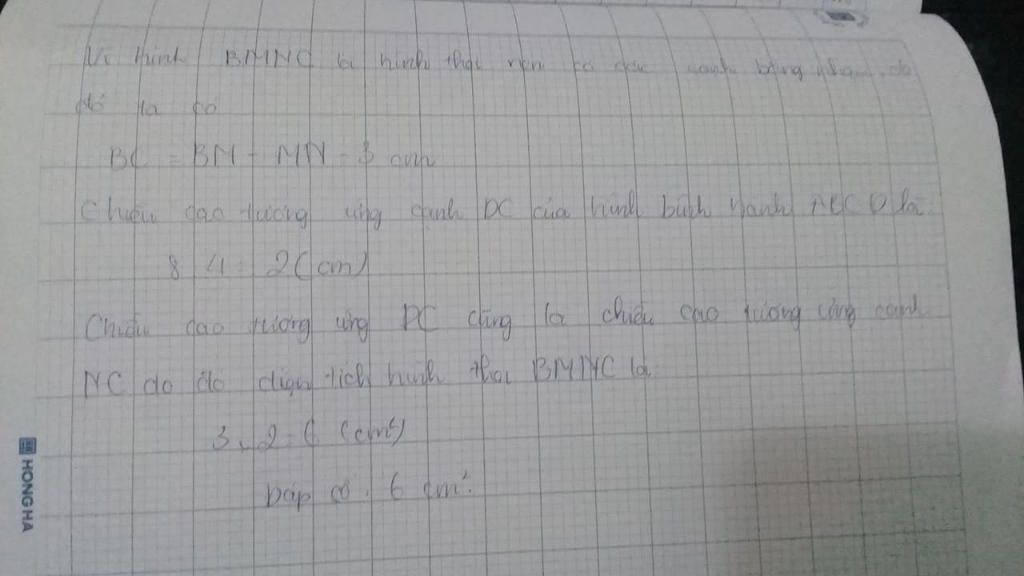 Vì hình BMNC là hình thoi nên có các cạnh bằng nhau, do
đó ta có
BC = BM = MN = 3 cm
Chiều cao tương ứng cạnh DC của hình bình hành ABCD là
8 : 4 = 2 (cm)
Chiều cao tương ứng DC cũng là chiều cao tương ứng cạnh
NC do đó diện tích hình thoi BMNC là
3 . 2 = 6 (cm²)
Đáp số : 6 cm².
HONG HA